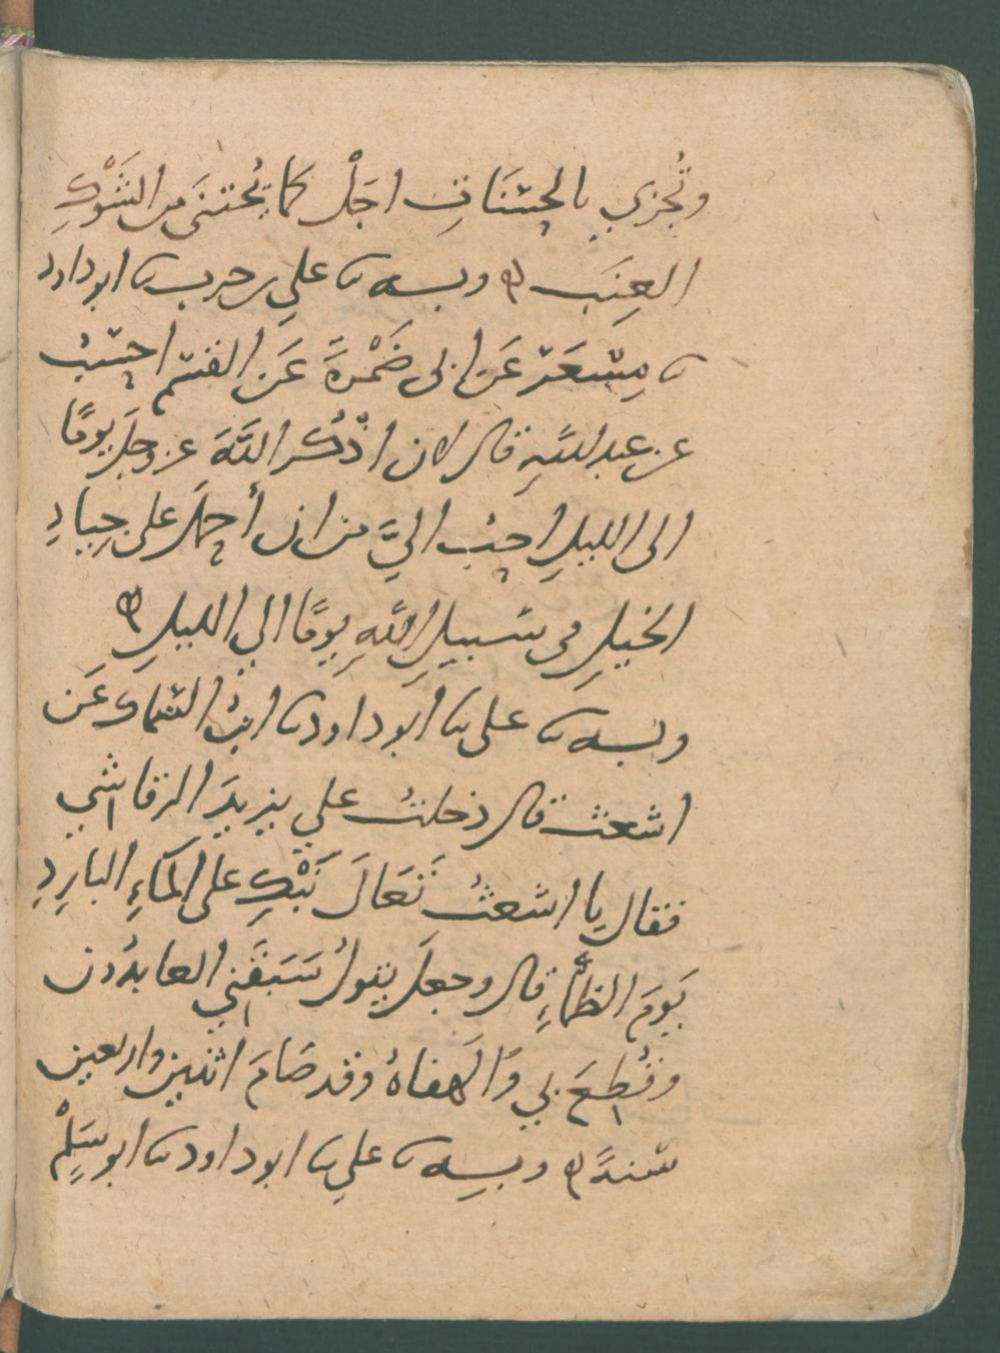 وتُجزي بالحسَنَاتِ اجَلْ كما يُجتنَى من الشَوْكِ
العِنَب ه وبه نا علي بن حرب نا ابو داود
نا مِسْعَر عَن ابى ضَمْرةَ عَن القسم احسبُ
عن عبد اللَّهِ قال لان اذْكُر اللَّهَ عز وجلَ يومًا
الى الليلِ احبُ اليَّ من ان أحمِلَ على جِيادِ
الخيلِ في سَبيلِ اللَّهِ يومًا الي الليلِ ه
وبه نا علي نا ابو داود نا ابنُ السَّماك عَن
اشعث قال دخلتُ علي يزيدَ الرقاشي
فقال يا اشعثُ تَعَالَ نَبْكِ على المَاءِ البارِدِ
يَومَ الظَّمَاءِ قال وجعلَ يقولُ سَبَقَنِي العابدُون
وقُطِعَ بي وَالَهفاهُ وقد صَامَ اثنين واربعين
سَنةً ه وبه نا علي نا ابو داود نا ابو